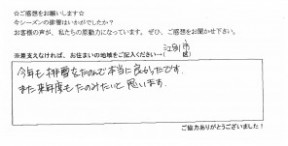 ☆ご感想をお願いします☆
今シーズンの排雪はいかがでしたか?
お客様の声が、私たちの原動力になっています。ぜひ、ご感想をお聞かせ下さい。
※差支えなければ、お住まいの地域をご記入ください→(江別 市 区)
今年も排雪をたのんで本当に良かったです。
また来年度もたのみたいと思います。
ご協力ありがとうございました!